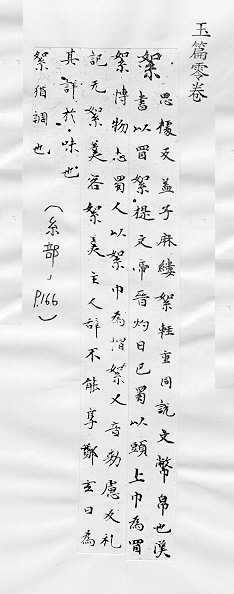 玉篇零卷
絮 思據反孟子麻縷絮輕重同說文幣帛也漢
書以冒絮提文帝晋灼曰巴蜀以頭上巾為冒
絮博物志蜀人以絮巾為帽絮又音勑慮反礼
記无絮羮容絮羮主人辞不能享鄭玄曰為
其詳於味也
絮猶調也
(糸部」P166)